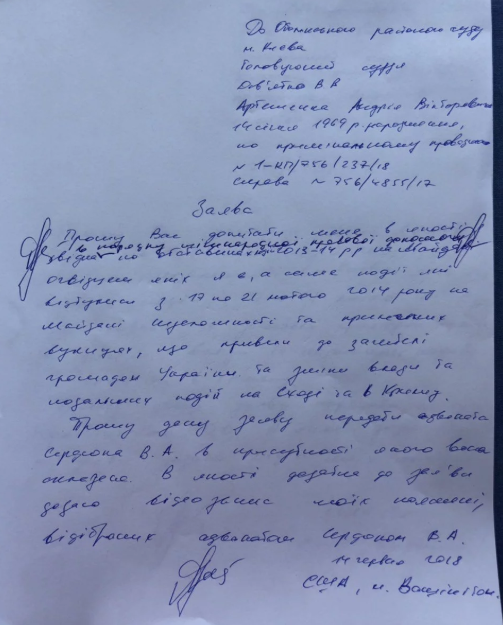 До Оболонського районного суду
м. Києва
Головуючий суддя
Дев'ятко В.В
Артеменка Андрія Вікторовича
14 січня 1969 р. народження,
по кримінальному провадженню
№ 1-КП/756/237/18
справа № 756/4855/17
Заява
Прошу Вас допитати мене в якості
в порядку міжнародної правової допомоги
свідка по обставинах 2013-14 рр на Майдані
очевидцем яких я є, а саме події які
відбулися з 17 по 21 лютого 2014 року на
майдані незалежності та прилеглих
вулицях, що привели до загибелі
громадян України та зміни влади та
подальших подій на Сході та в Криму.
Прошу дану заяву передати адвоката
Сердюка В.А. в присутності якого вона
складена. В якості додатка до заяви
додаю відеозапис моїх пояснень,
відібраних адвокатом Сердюком В.А.
14 червня 2018
США, м. Вашінгтон.